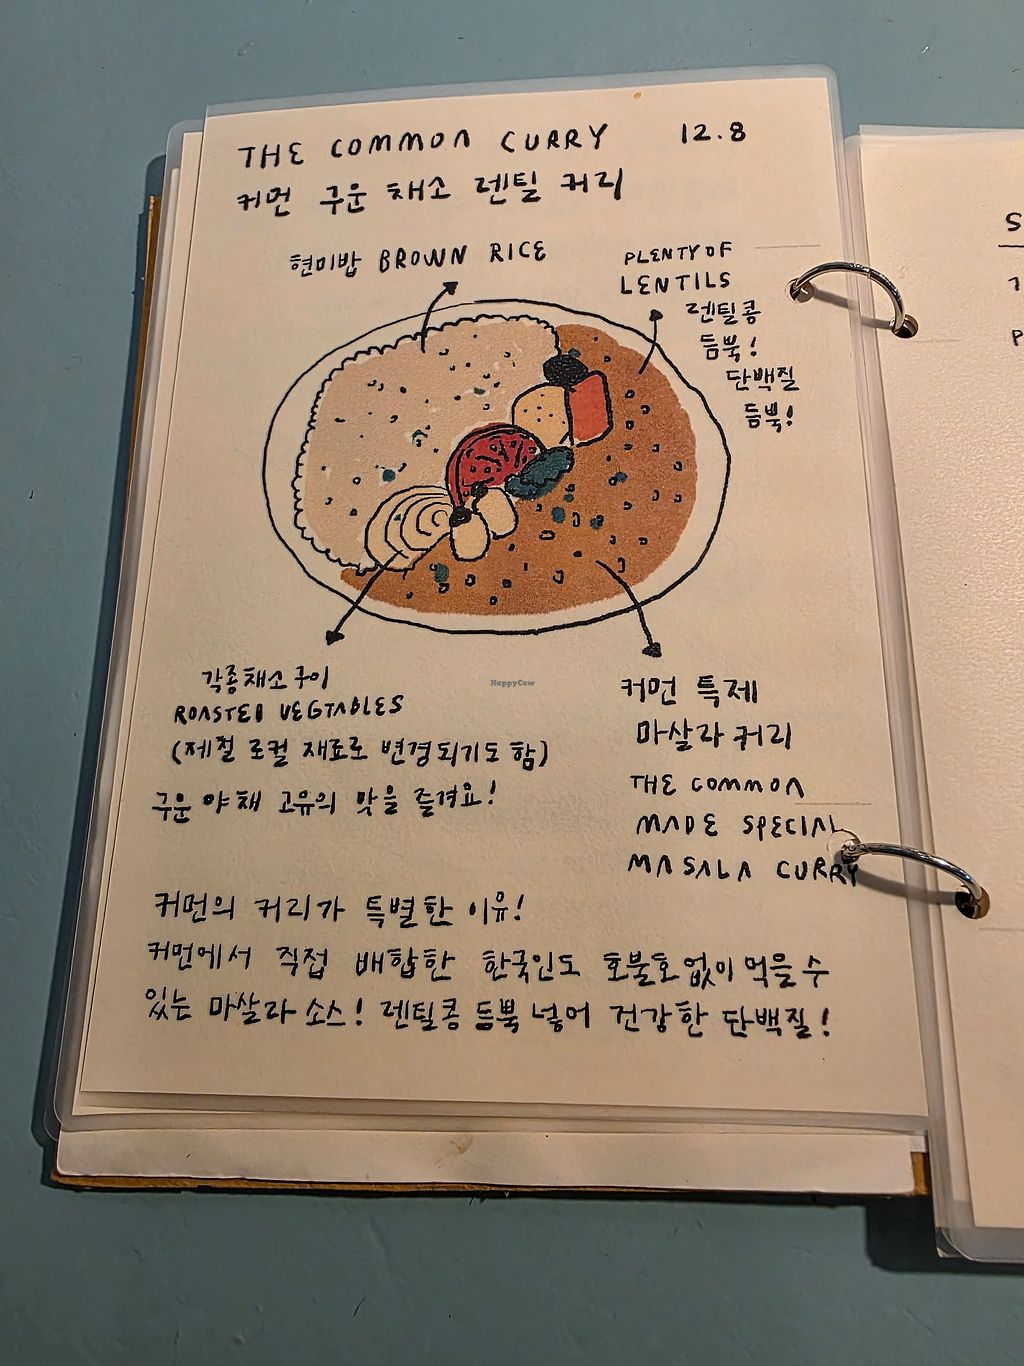 THE COMMON CURRY 12.8
커먼 구운 채소 렌틸 커리
현미밥 BROWN RICE
PLENTY OF
LENTILS
렌틸콩
듬뿍!
단백질
듬뿍!
각종채소구이
ROASTED VEGTABLES
(제철 로컬 재료로 변경되기도 함)
구운 야채 고유의 맛을 즐겨요!
커먼 특제
마살라 커리
THE COMMON
MADE SPECIAL
MASALA CURRY
커먼의 커리가 특별한 이유!
커먼에서 직접 배합한 한국인도 호불호 없이 먹을 수
있는 마살라 소스! 렌틸콩 듬뿍 넣어 건강한 단백질!
HappyCow
S
P